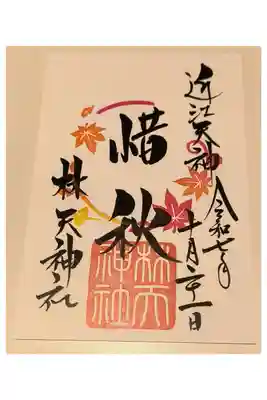 近江天神
令和七年
十月二十一日
惜秋
林天神社
林天神社